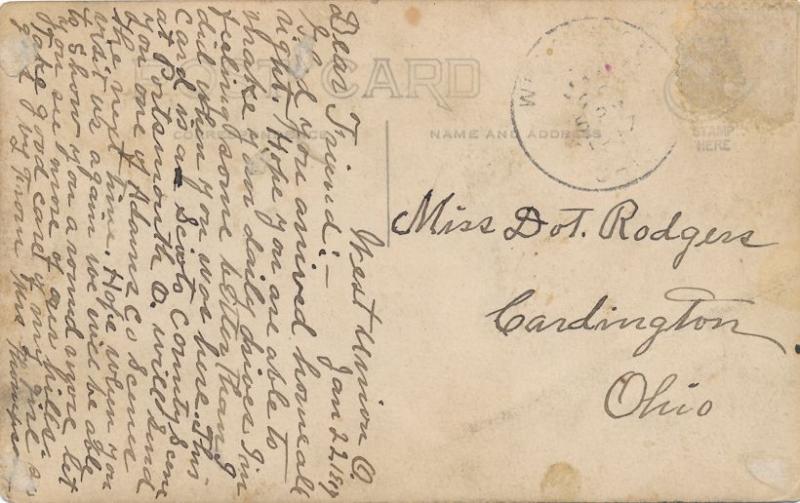 POST CARD
CORRESPONDENCE
NAME AND ADDRESS
STAMP
HERE
West Union O.
Jan 22
Dear Friend:—
you arrived home all
right. Hope you are able to
make your daily drives I'm
feeling some better than I
did when you was here. This
Card is a Scioto County Scene
at Portsmouth O. will send
you one of Adams Co Scenes
the next time. Hope when you
visit us again we will be able
to show you around more, let
you see more of our hills.
Take good care of my girl
from Mrs Thompson
Miss Dot. Rodgers
Cardington
Ohio